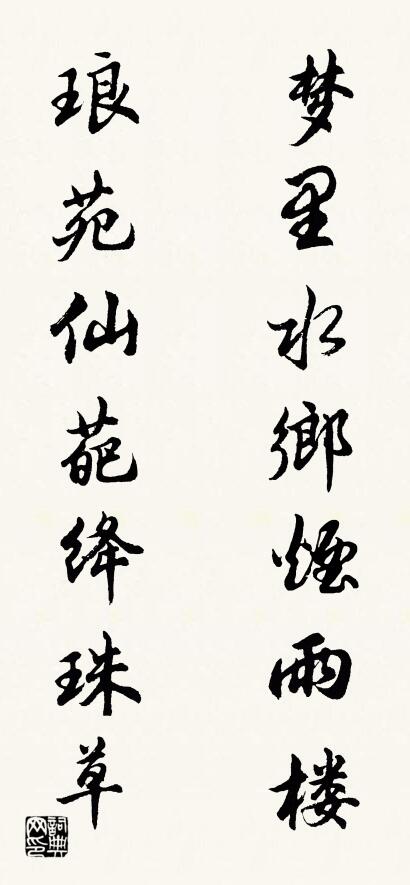 梦里水鄉煙雨楼
琅苑仙葩绛珠草
詞典網印